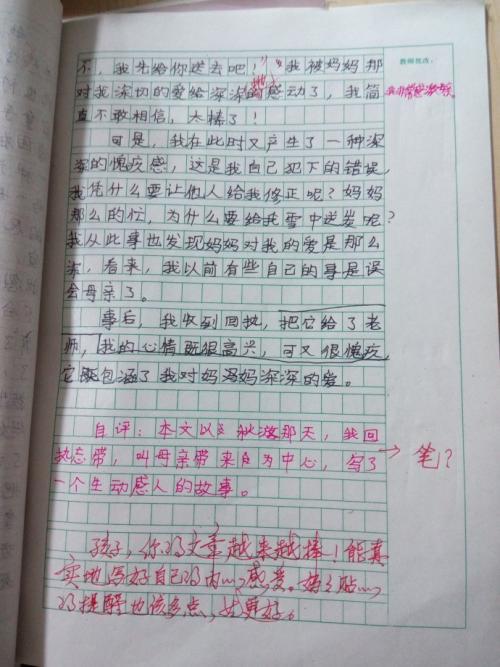 不，我先给你送去吧！”我被妈妈那
教师批改：
对我深切的爱给深深地感动了，我简
我非常感激
直不敢相信，太棒了！
可是，我在此时又产生了一种深
深的愧疚感，这是我自己犯下的错误，
我凭什么要让他人给我修正呢？妈妈
那么的忙，为什么要给我雪中送炭呢？
我从此事也发现妈妈对我的爱是那么
深，看来，我以前有些自己的事是误
会母亲了。
事后，我收到回执，把它给了老
师，我的心情既很高兴，可又很愧疚，
它既包涵了我对妈妈深深的爱。
自评：本文以秋游那天，我回
执忘带，叫母亲带来为中心，写了
笔？
一个生动感人的故事。
孩子，你的文章越来越棒！能真
实地写好自己的内心感受。妈妈贴心
的提醒也该多点，就更好。